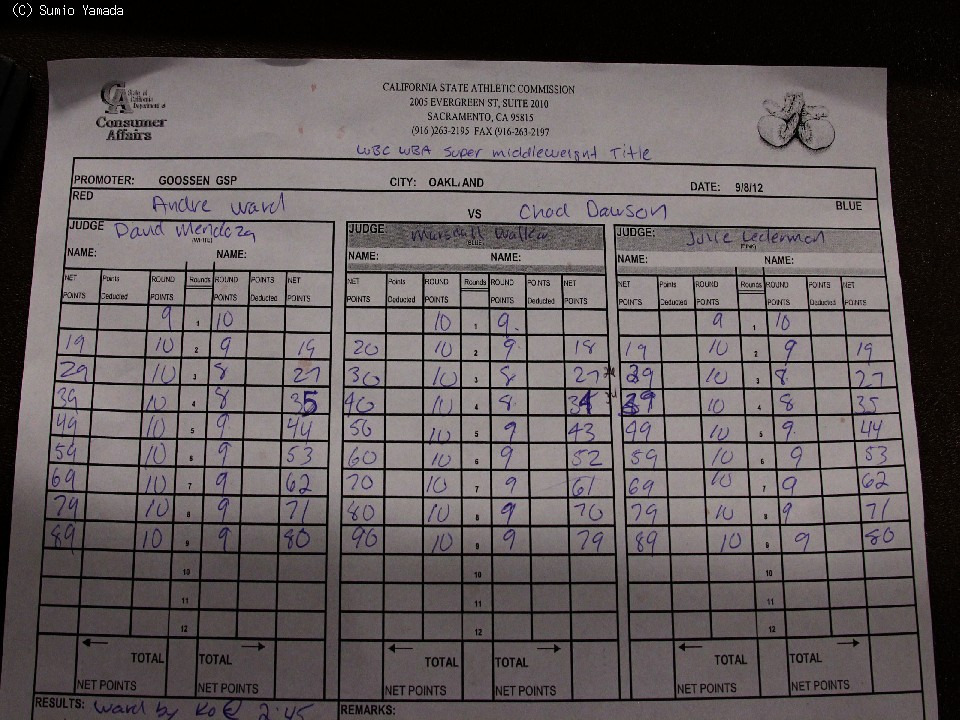 (C) Sumio Yamada
State of
California
Department of
Consumer
Affairs
CALIFORNIA STATE ATHLETIC COMMISSION
2005 EVERGREEN ST, SUITE 2010
SACRAMENTO, CA 95815
(916 )263-2195 FAX (916-263-2197
WBC WBA Super middleweight Title
PROMOTER: GOOSSEN GSP CITY: OAKLAND DATE: 9/8/12
RED Andre Ward VS Chad Dawson BLUE
JUDGE David Mendoza (WHITE) JUDGE Marshall Walker (BLUE) JUDGE: Julie Lederman (PINK)
NAME: NAME: NAME: NAME: NAME: NAME:
NET Points ROUND Rounds ROUND POINTS NET NET Points ROUND Rounds ROUND POINTS NET NET POINTS ROUND Rounds ROUND POINTS NET
POINTS Deducted POINTS POINTS Deducted POINTS POINTS Deducted POINTS POINTS Deducted POINTS POINTS Deducted POINTS POINTS Deducted POINTS
9 1 10 10 1 9 9 1 10
19 10 2 9 19 20 10 2 9 18 19 10 2 9 19
29 10 3 8 27 30 10 3 8 27 29 10 3 8 27
39 10 4 8 35 40 10 4 8 34 39 10 4 8 35
49 10 5 9 44 50 10 5 9 43 49 10 5 9 44
59 10 6 9 53 60 10 6 9 52 59 10 6 9 53
69 10 7 9 62 70 10 7 9 61 69 10 7 9 62
79 10 8 9 71 80 10 8 9 70 79 10 8 9 71
89 10 9 9 80 90 10 9 9 79 89 10 9 9 80
10 10 10
11 11 11
12 12 12
TOTAL TOTAL TOTAL TOTAL TOTAL TOTAL
NET POINTS NET POINTS NET POINTS NET POINTS NET POINTS NET POINTS
RESULTS: Ward by KO @ 2:45 REMARKS: